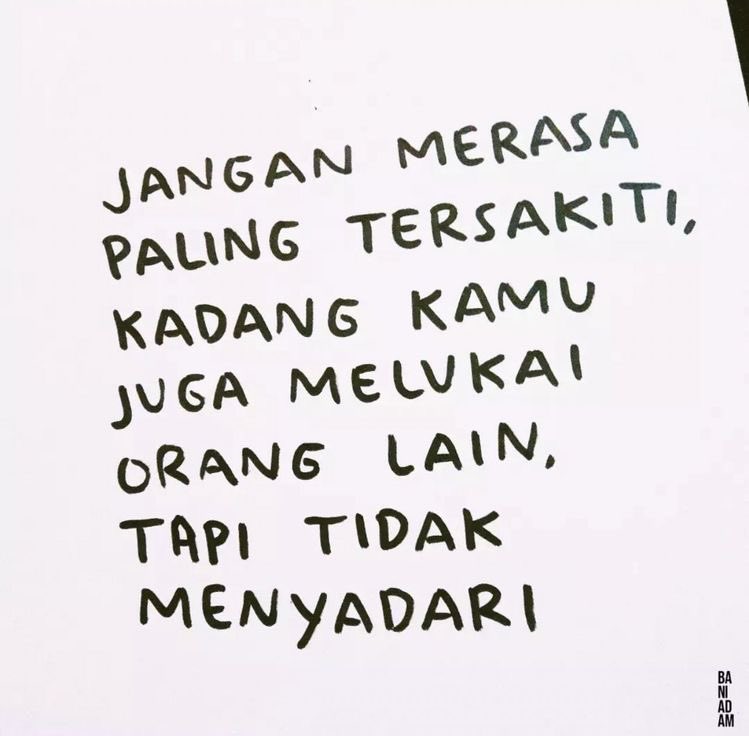 JANGAN MERASA
PALING TERSAKITI,
KADANG KAMU
JUGA MELUKAI
ORANG LAIN,
TAPI TIDAK
MENYADARI
BA
NI
AD
AM